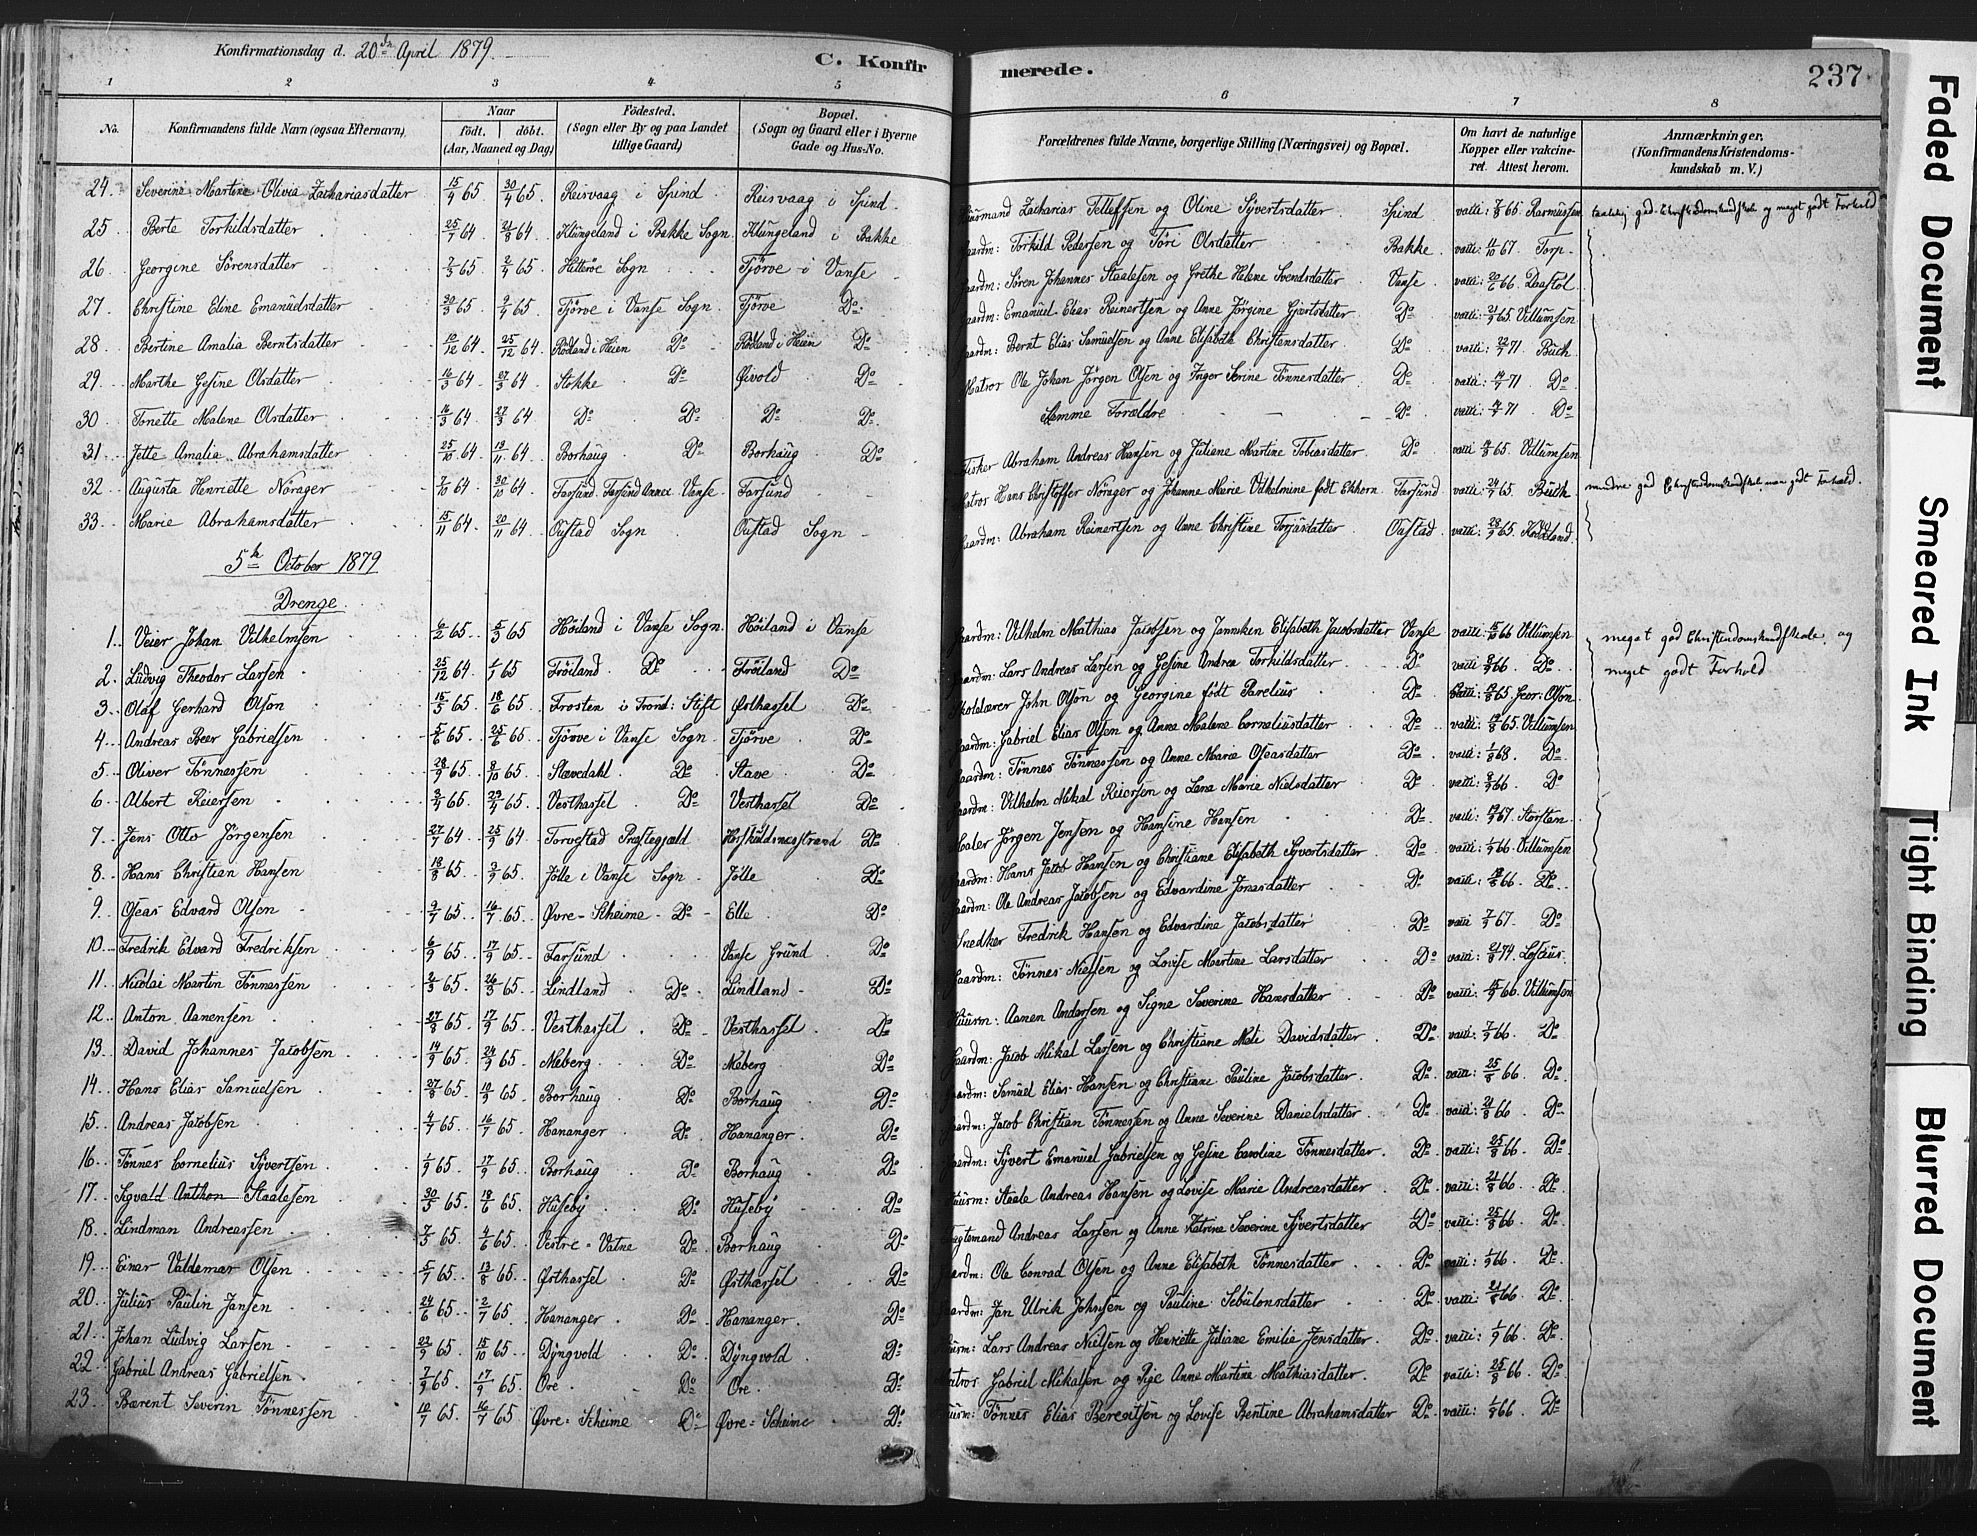 Konfirmationsdag d. 20de April 1879.
C. Konfirmerede.
237.
1 2 3 4 5 6 7 8
No. Konfirmandens fulde Navn (ogsaa Efternavn). Naar født. døbt. (Aar, Maaned og Dag) Fødested. (Sogn eller By og paa Landet tillige Gaard) Bopæl. (Sogn og Gaard eller i Byerne Gade og Hus-No. Forældrenes fulde Navne, borgerlige Stilling (Næringsvei) og Bopæl. Om havt de naturlige Kopper eller vakcineret. Attest herom. Anmærkninger. (Konfirmandens Kristendomskundskab m. V.)
24. Severine Martine Olivia Zachariasdatter 15/4 65 30/4 65 Reisvaag i Spind Reisvaag i Spind Huusmand Zacharias Tellefsen og Oline Syvertsdatter Spind vacci: 7/8 66 Rasmussen taalelig god Christendomskundskab og meget godt Forhold
25 Berte Torkildsdatter 25/7 64 21/8 64 Klungeland i Bakke Sogn Klungeland i Bakke Gaardm: Torkild Pedersen og Tøri Olsdatter Bakke vacci: 11/10 67 Torp
26 Georgine Sørensdatter 7/3 65 2/4 65 Hitterøe Sogn Tjørve i Vanse Gaardm: Søren Johannes Staalesen og Grethe Helene Svendsdatter Vanse vacci: 20/6 66 Daastøl
27 Christine Eline Emanuelsdatter 30/3 65 9/4 65 Tjørve i Vanse Sogn Tjørve Do Gaardm: Emanuel Elias Reinertsen og Anne Jørgine Gjertsdatter Do vacci: 21/9 65 Villumsen
28 Bertine Amalia Berntsdatter 10/12 64 25/12 64 Rødland i Heien Do Rødland i Heien Do Gaardm: Bernt Elias Samuelsen og Anne Elisabeth Christensdatter Do vacci: 22/7 71 Buch
29 Marthe Gesine Olsdatter 16/3 64 27/3 64 Stokke Do Øivold Do Matros Ole Johan Jørgen Olsen og Inger Serine Tønnesdatter Do vacci: 14/7 71 Do
30 Tonette Malene Olsdatter 16/3 64 27/3 64 Do Do Do Do Samme Forældre Do vacci: 14/7 71 Do
31 Jette Amalia Abrahamsdatter 25/10 64 13/11 64 Borhaug Do Borhaug Do Fisker Abraham Andreas Hansen og Juliane Martine Tobiasdatter Do vacci: 65 Villumsen
32 Augusta Henriette Nørager 7/10 64 30/10 64 Farsund. Farsund Annex Vanse Farsund Matros Hans Christoffer Nørager og Johanne Marie Vilhelmine født Ekhorn Farsund vacci: 24/7 65 Buch mindre god Christendomskundskab, men godt Forhold.
33 Marie Abrahamsdatter 15/11 64 20/11 64 Oustad Sogn Oustad Sogn Gaardm: Abraham Reinertsen og Anne Christine Torjusdatter Oustad vacci: 65
5te October 1879
Drenge
1. Veier Johan Vilhelmsen 6/2 65 5/3 65 Høiland i Vanse Sogn Høiland i Vanse Gaardm: Vilhelm Mathias Jacobsen og Janniken Elisabeth Jacobsdatter Vanse vacci: 15/10 66 Villumsen meget god Christendomskundskab og
2. Ludvig Theodor Larsen 25/12 64 1/1 65 Frøiland Do Frøiland Do Gaardm: Lars Andreas Larsen og Gesine Andrea Torkildsdatter Do vacci: 66 Do meget godt Forhold
3 Olaf Gerhard Olson 15/5 65 18/6 65 Frosten i Trond: Stift Østhassel Do Skolelærer John Olson og Georgine født Parelius Do vacci: 65 Geor: Olson
4 Andreas Beer Gabrielsen 5/6 65 25/6 65 Tjørve i Vanse Sogn Tjørve Do Gaardm: Gabriel Elias Olsen og Anne Malene Corneliusdatter Do vacci: 65 Villumsen
5 Oliver Tønnessen 28/9 65 8/10 65 Stavedahl Do Stave Do Gaardm: Tønnes Tønnessen og Anne Marie Oseasdatter Do vacci: 68 Do
6 Albert Reiersen 2/4 65 23/4 65 Vesthassel Do Vesthassel Do Gaardm: Vilhelm Mikal Reiersen og Lena Marie Nielsdatter Do vacci: 66 Do
7 Jens Otto Jørgensen 27/7 64 25/9 64 Torvestad Præstegjæld Do Maler Jørgen Jensen og Hansine Hansen Do vacci: 67
8 Hans Christian Hansen 18/8 65 3/9 65 Jølle i Vanse Sogn Jølle Do Gaardm: Hans Jacob Hansen og Christiane Elisabeth Syvertsdatter Do vacci: 1/9 66 Villumsen
9 Oseas Edvard Olsen 2/7 65 16/7 65 Øvre-Skeime Do Elle Do Gaardm: Ole Andreas Jacobsen og Edvardine Jonasdatter Do vacci: 66 Do
10 Fredrik Edvard Fredriksen 6/9 65 17/9 65 Farsund Vanse Grund Do Snedker Fredrik Hansen og Edvardine Jacobsdatter Do vacci: 7/9 67 Do
11 Nicolai Martin Tønnessen 2/3 65 26/3 65 Lindland Do Lindland Do Gaardm: Tønnes Nielsen og Lovise Martine Larsdatter Do vacci: 21/8 74
12 Anton Aanensen 27/8 65 17/9 65 Vesthassel Do Vesthassel Do Huusm: Aanen Andersen og Signe Severine Hansdatter Do vacci: 66 Villumsen
13 David Johannes Jacobsen 14/9 65 24/9 65 Meberg Do Meberg Do Gaardm: Jacob Mikal Larsen og Christiane Mele Davidsdatter Do vacci: 7/9 66 Do
14 Hans Elias Samuelsen 27/8 65 10/9 65 Borhaug Do Borhaug Do Gaardm: Samuel Elias Hansen og Christiane Pauline Jacobsdatter Do vacci: 25/8 66 Do
15 Andreas Jacobsen 4/7 65 16/7 65 Hananger Do Hananger Do Gaardm: Jacob Christian Tønnessen og Anne Severine Danielsdatter Do vacci: 21/8 66 Do
16 Tønnes Cornelius Syvertsen 1/9 65 17/9 65 Borhaug Do Borhaug Do Gaardm: Syvert Emanuel Gabrielsen og Gesine Caroline Tønnesdatter Do vacci: 25/8 66 Do
17 Sigvald Anthon Staalesen 30/5 65 18/6 65 Huseby Do Huseby Do Huusm: Staale Andreas Hansen og Lovise Marie Andreasdatter Do vacci: 21/8 66 Do
18 Lindman Andreassen 7/5 65 4/6 65 Vestre-Vatne Do Borhaug Do Andreas Larsen og Anne Katrine Severine Syvertsdatter Do vacci: 25/8 66 Do
19 Einar Valdemar Olsen 5/7 65 13/8 65 Østhassel Do Østhassel Do Gaardm: Ole Conrad Olsen og Anne Elisabeth Tønnesdatter Do vacci: 1/9 66 Do
20 Julius Paulin Jansen 24/6 65 2/7 65 Hananger Do Hananger Do Gaardm: Jan Ulrik Johnsen og Pauline Sebulonsdatter Do vacci: 21/8 66 Do
21 Johan Ludvig Larsen 22/9 65 15/10 65 Dyngvold Do Dyngvold Do Huusm: Lars Andreas Nielsen og Henriette Juliane Emilie Jensdatter Do vacci: 1/9 66 Do
22 Gabriel Andreas Gabrielsen 7/9 65 17/9 65 Ore Do Ore Do Matros Gabriel Mikalsen og Pige Anne Martine Mathiasdatter Do vacci: 25/8 66 Do
23 Bærent Severin Tønnessen 10/7 65 16/7 65 Øvre-Skeime Do Øvre-Skeime Do Huusm: Tønnes Elias Berentsen og Lovise Bentine Abrahamsdatter Do vacci: 1/9 66 Do
Faded Document
Smeared Ink
Tight Binding
Blurred Document